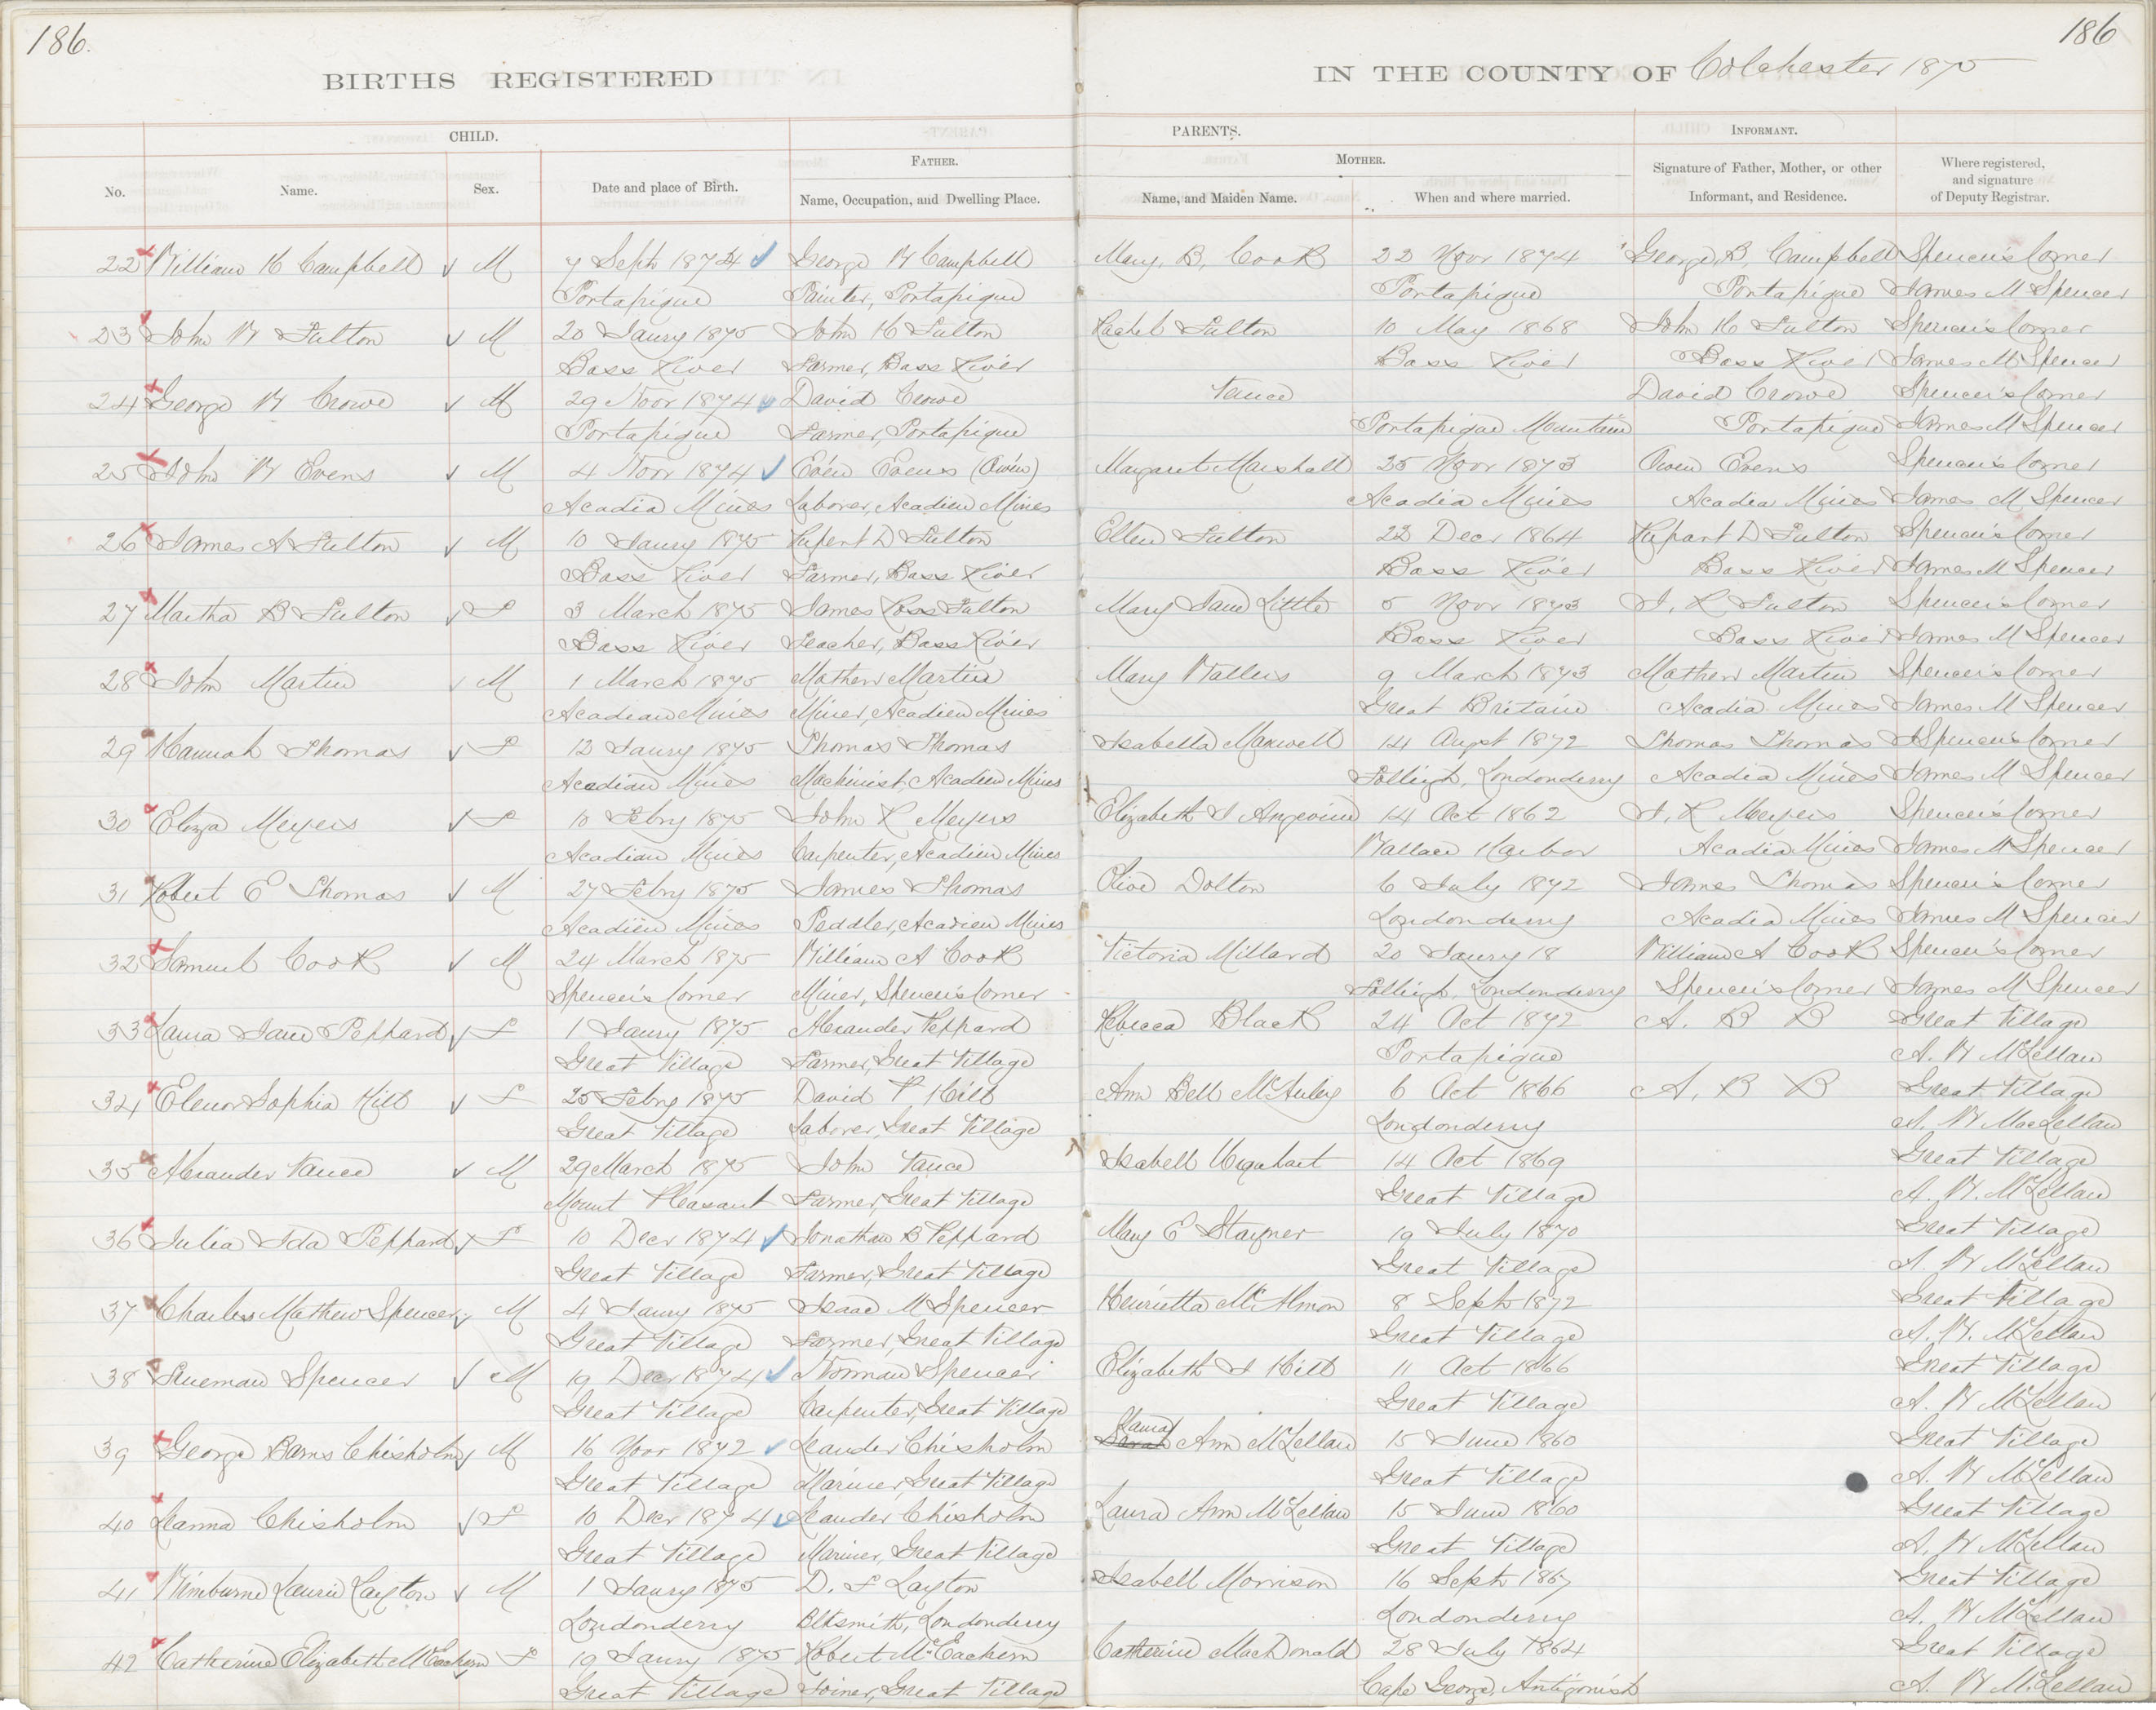 186.
186
BIRTHS REGISTERED
IN THE COUNTY OF Colchester 1875
CHILD.
PARENTS.
INFORMANT.
FATHER.
MOTHER.
No.
Name.
Sex.
Date and place of Birth.
Name, Occupation, and Dwelling Place.
Name, and Maiden Name.
When and where married.
Signature of Father, Mother, or other
Informant, and Residence.
Where registered,
and signature
of Deputy Registrar.
22 William H Campbell M 7 Sept 1874 George W Campbell Mary, B, Cook 22 Novr 1874 George, B, Campbell Spencer's Corner
Portapique Painter, Portapique Portapique Portapique James M Spencer
23 John W Fulton M 20 Janry 1875 John H Fulton Rachel Fulton 10 May 1868 John H Fulton Spencer's Corner
Bass River Farmer, Bass River Bass River Bass River James M Spencer
24 George W Crowe M 29 Novr 1874 David Crowe Vance David Crowe Spencer's Corner
Portapique Farmer, Portapique Portapique Mountain Portapique James M Spencer
25 John W Evens M 4 Novr 1874 Even Evens (Owen) Margaret Marshall 25 Novr 1873 Owen Evens Spencer's Corner
Acadia Mines Laborer, Acadien Mines Acadia Mines Acadia Mines James M Spencer
26 James A Fulton M 10 Janry 1875 Rupert D Fulton Ellen Fulton 22 Decr 1864 Rupart D Fulton Spencer's Corner
Bass River Farmer, Bass River Bass River Bass River James M Spencer
27 Martha B Fulton F 3 March 1875 James Ross Fulton Mary Jane Little 5 Novr 1873 J. R Fulton Spencer's Corner
Bass River Teacher, Bass River Bass River Bass River James M Spencer
28 John Martin M 1 March 1875 Mathew Martin Mary Wallers 9 March 1873 Mathew Martin Spencer's Corner
Acadian Mines Miner, Acadien Mines Great Britain Acadia Mines James M Spencer
29 Hannah Thomas F 12 Janry 1875 Thomas Thomas Isabella Maxwell 14 Augst 1872 Thomas Thomas Spencer's Corner
Acadian Mines Machinist, Acadien Mines Folleigh, Londonderry Acadia Mines James M Spencer
30 Eliza Meyers F 10 Febry 1875 John R Meyers Elizabeth J Angevine 14 Oct 1862 J. R Meyers Spencer's Corner
Acadian Mines Carpenter, Acadien Mines Wallace Harbor Acadia Mines James M Spencer
31 Robert E Thomas M 27 Febry 1875 James Thomas Olive Dolton 6 July 1872 James Thomas Spencer's Corner
Acadien Mines Peddler, Acadien Mines Londonderry Acadia Mines James M Spencer
32 Samuel Cook M 24 March 1875 William A Cook Victoria Millard 20 Janry 18 William A Cook Spencer's Corner
Spencer's Corner Miner, Spencer's Corner Folleigh, Londonderry Spencer's Corner James M Spencer
33 Laura Jane Peppard F 1 Janry 1875 Alexander Peppard Rebecca Black 24 Oct 1872 A. B B Great Village
Great Village Farmer, Great Village Portapique A. W McLellan
34 Elenor Sophia Hill F 25 Febry 1875 David P Hill Ann Bell McAuley 6 Oct 1866 A, B B Great Village
Great Village Laborer, Great Village Londonderry A. W MacLellan
35 Alexander Vance M 29 March 1875 John Vance Isabell Urquhart 14 Oct 1869 Great Village
Mount Pleasant Farmer, Great Village Great Village A. W. McLellan
36 Julia Ida Peppard F 10 Decr 1874 Jonathan B Peppard Mary E Stayner 19 July 1870 Great Village
Great Village Farmer, Great Village Great Village A. W McLellan
37 Charles Mathew Spencer M 4 Janry 1875 Isaac M Spencer Henrietta McAlmon 8 Sept 1872 Great Village
Great Village Farmer, Great Village Great Village A. W. McLellan
38 Trueman Spencer M 19 Decr 1874 Norman Spencer Elizabeth J Hill 11 Oct 1866 Great Village
Great Village Carpenter, Great Village Great Village A. W McLellan
Laura
39 George Barns Chisholm M 16 Novr 1872 Leander Chisholm Sarah Ann McLellan 15 June 1860 Great Village
Great Village Mariner, Great Village Great Village A. W McLellan
40 Leanna Chisholm F 10 Decr 1874 Leander Chisholm Laura Ann McLellan 15 June 1860 Great Village
Great Village Mariner, Great Village Great Village A. W McLellan
41 Wimburne Laurie Layton M 1 Janry 1875 D. F Layton Isabell Morrison 16 Sept 1867 Great Village
Londonderry Blksmith, Londonderry Londonderry A. W McLellan
42 Catherine Elizabeth McEachern F 19 Janry 1875 Robert McEachern Catherine MacDonald 28 July 1864 Great Village
Great Village Joiner, Great Village Cape George, Antigonish A. W McLellan